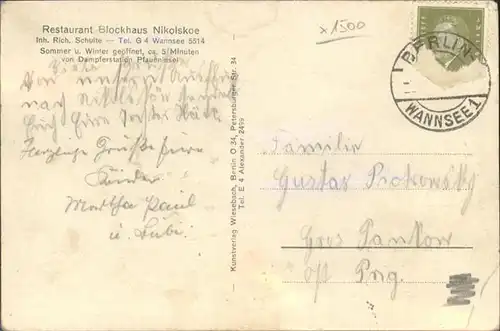 Restaurant Blockhaus Nikolskoe
Inh. Rich. Schulte — Tel. G 4 Wannsee 5514
Sommer u. Winter geöffnet, ca. 5 Minuten
von Dampferstation Pfaueninsel
x 1500
BERLIN-
WANNSEE 1
Von unserer
nach Nikolskoe senden
Euch Eure
Herzliche Grüße Eure
Kinder
Martha Paul
u.
Kunstverlag Wiesebach, Berlin O 34, Petersburger Str. 34
Tel. E 4 Alexander 2499
Familie
Gustav Piotrowsky
Gros Pankow
Prig.